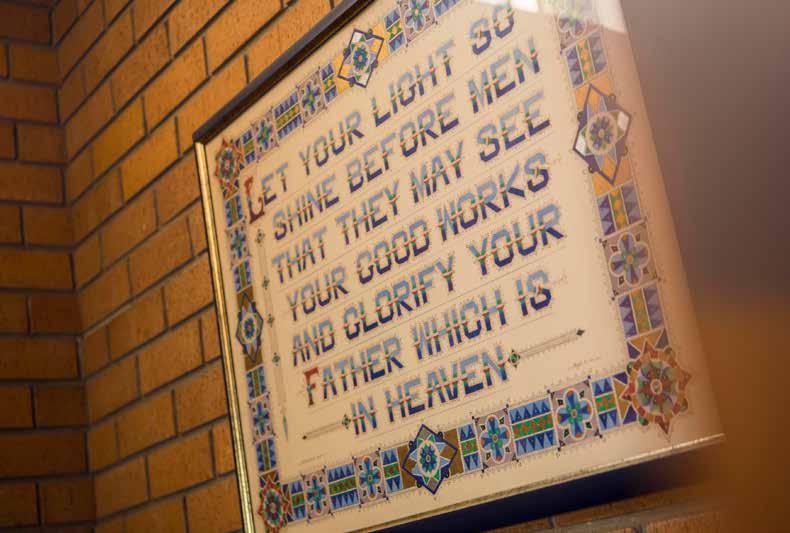 LET YOUR LIGHT SO
SHINE BEFORE MEN
THAT THEY MAY SEE
YOUR GOOD WORKS
AND GLORIFY YOUR
FATHER WHICH IS
IN HEAVEN